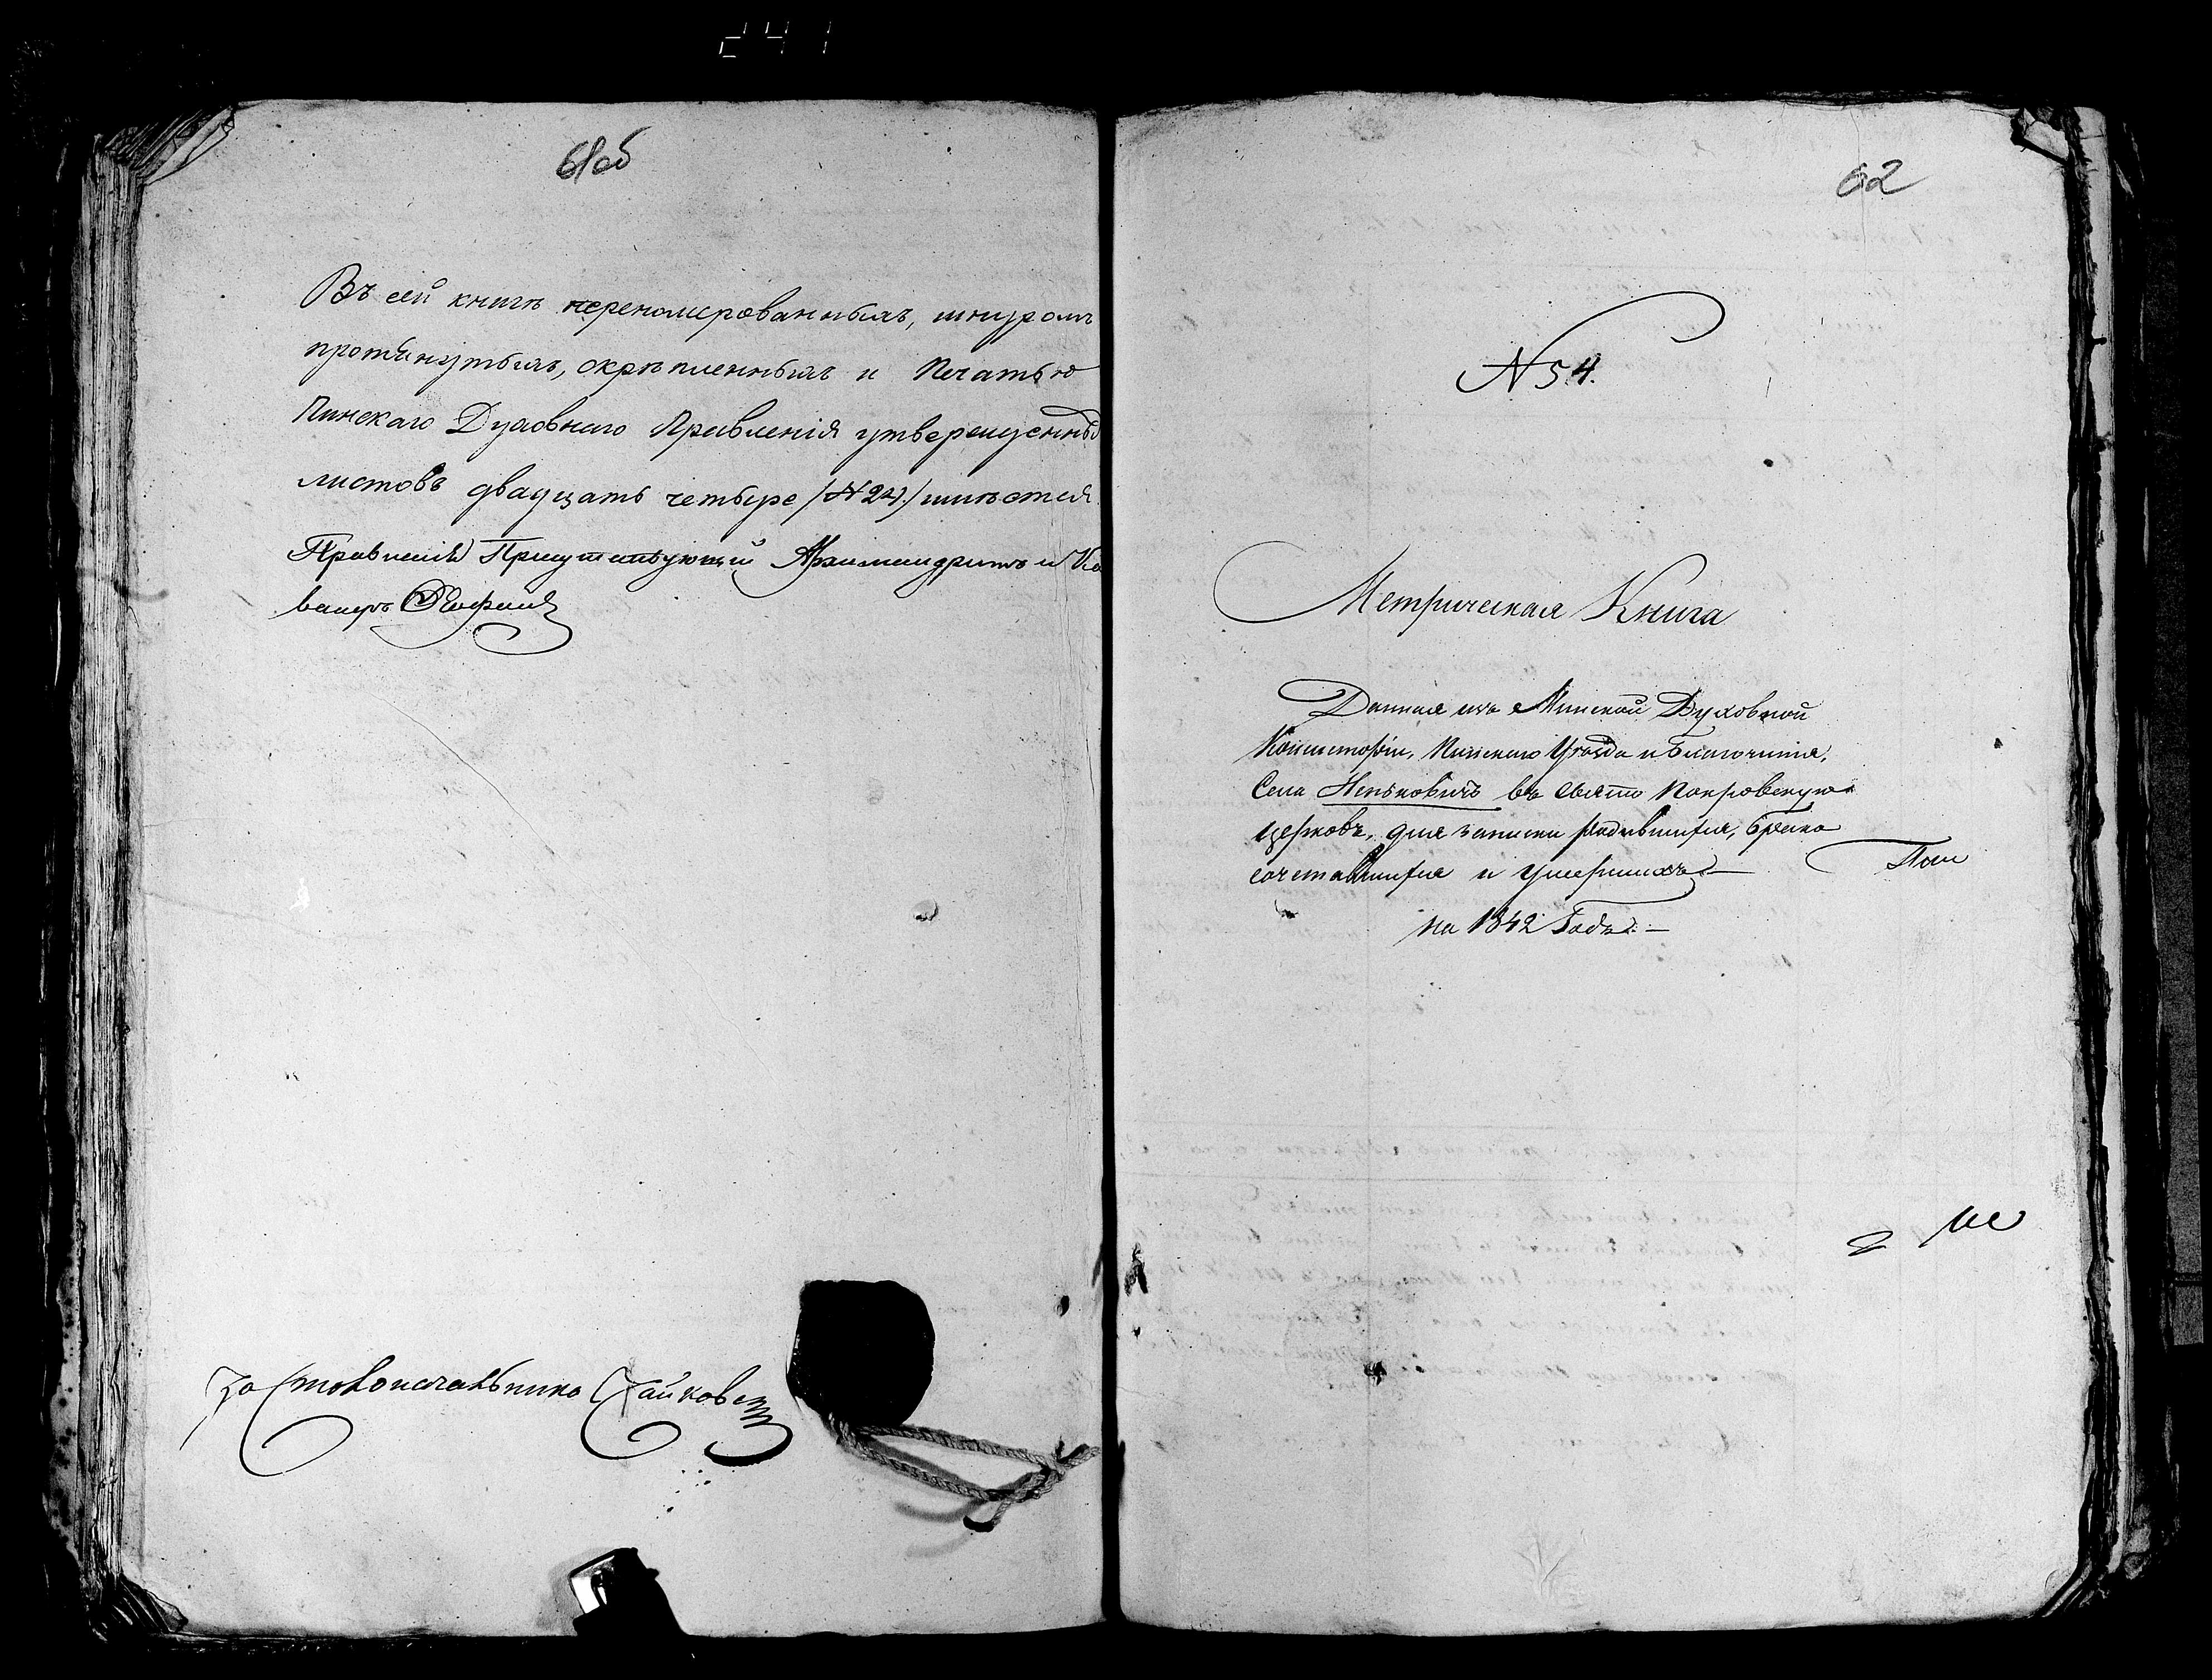 241
61об
Въ сей книгѣ перенумерованныхъ, шнуромъ
протянутыхъ, скрѣпленныхъ и Печатью
Пинскаго Духовнаго Правленія утвержденны
листовъ двадцать четыре /№ 24./ имѣется.
Правленія Присутствующій Архимандритъ и Ка
валеръ
За Столоначальника Чайковскій
62
N 54.
Метрическая Книга
Данная изъ Минской Духовной
Консисторіи, Пинскаго Уѣзда и Благочинія,
Села Неньковичъ въ Свято Покровскую
церковь, для записки родившихся, брако
сочетавшихся и умершихъ
на 1842 Годъ.